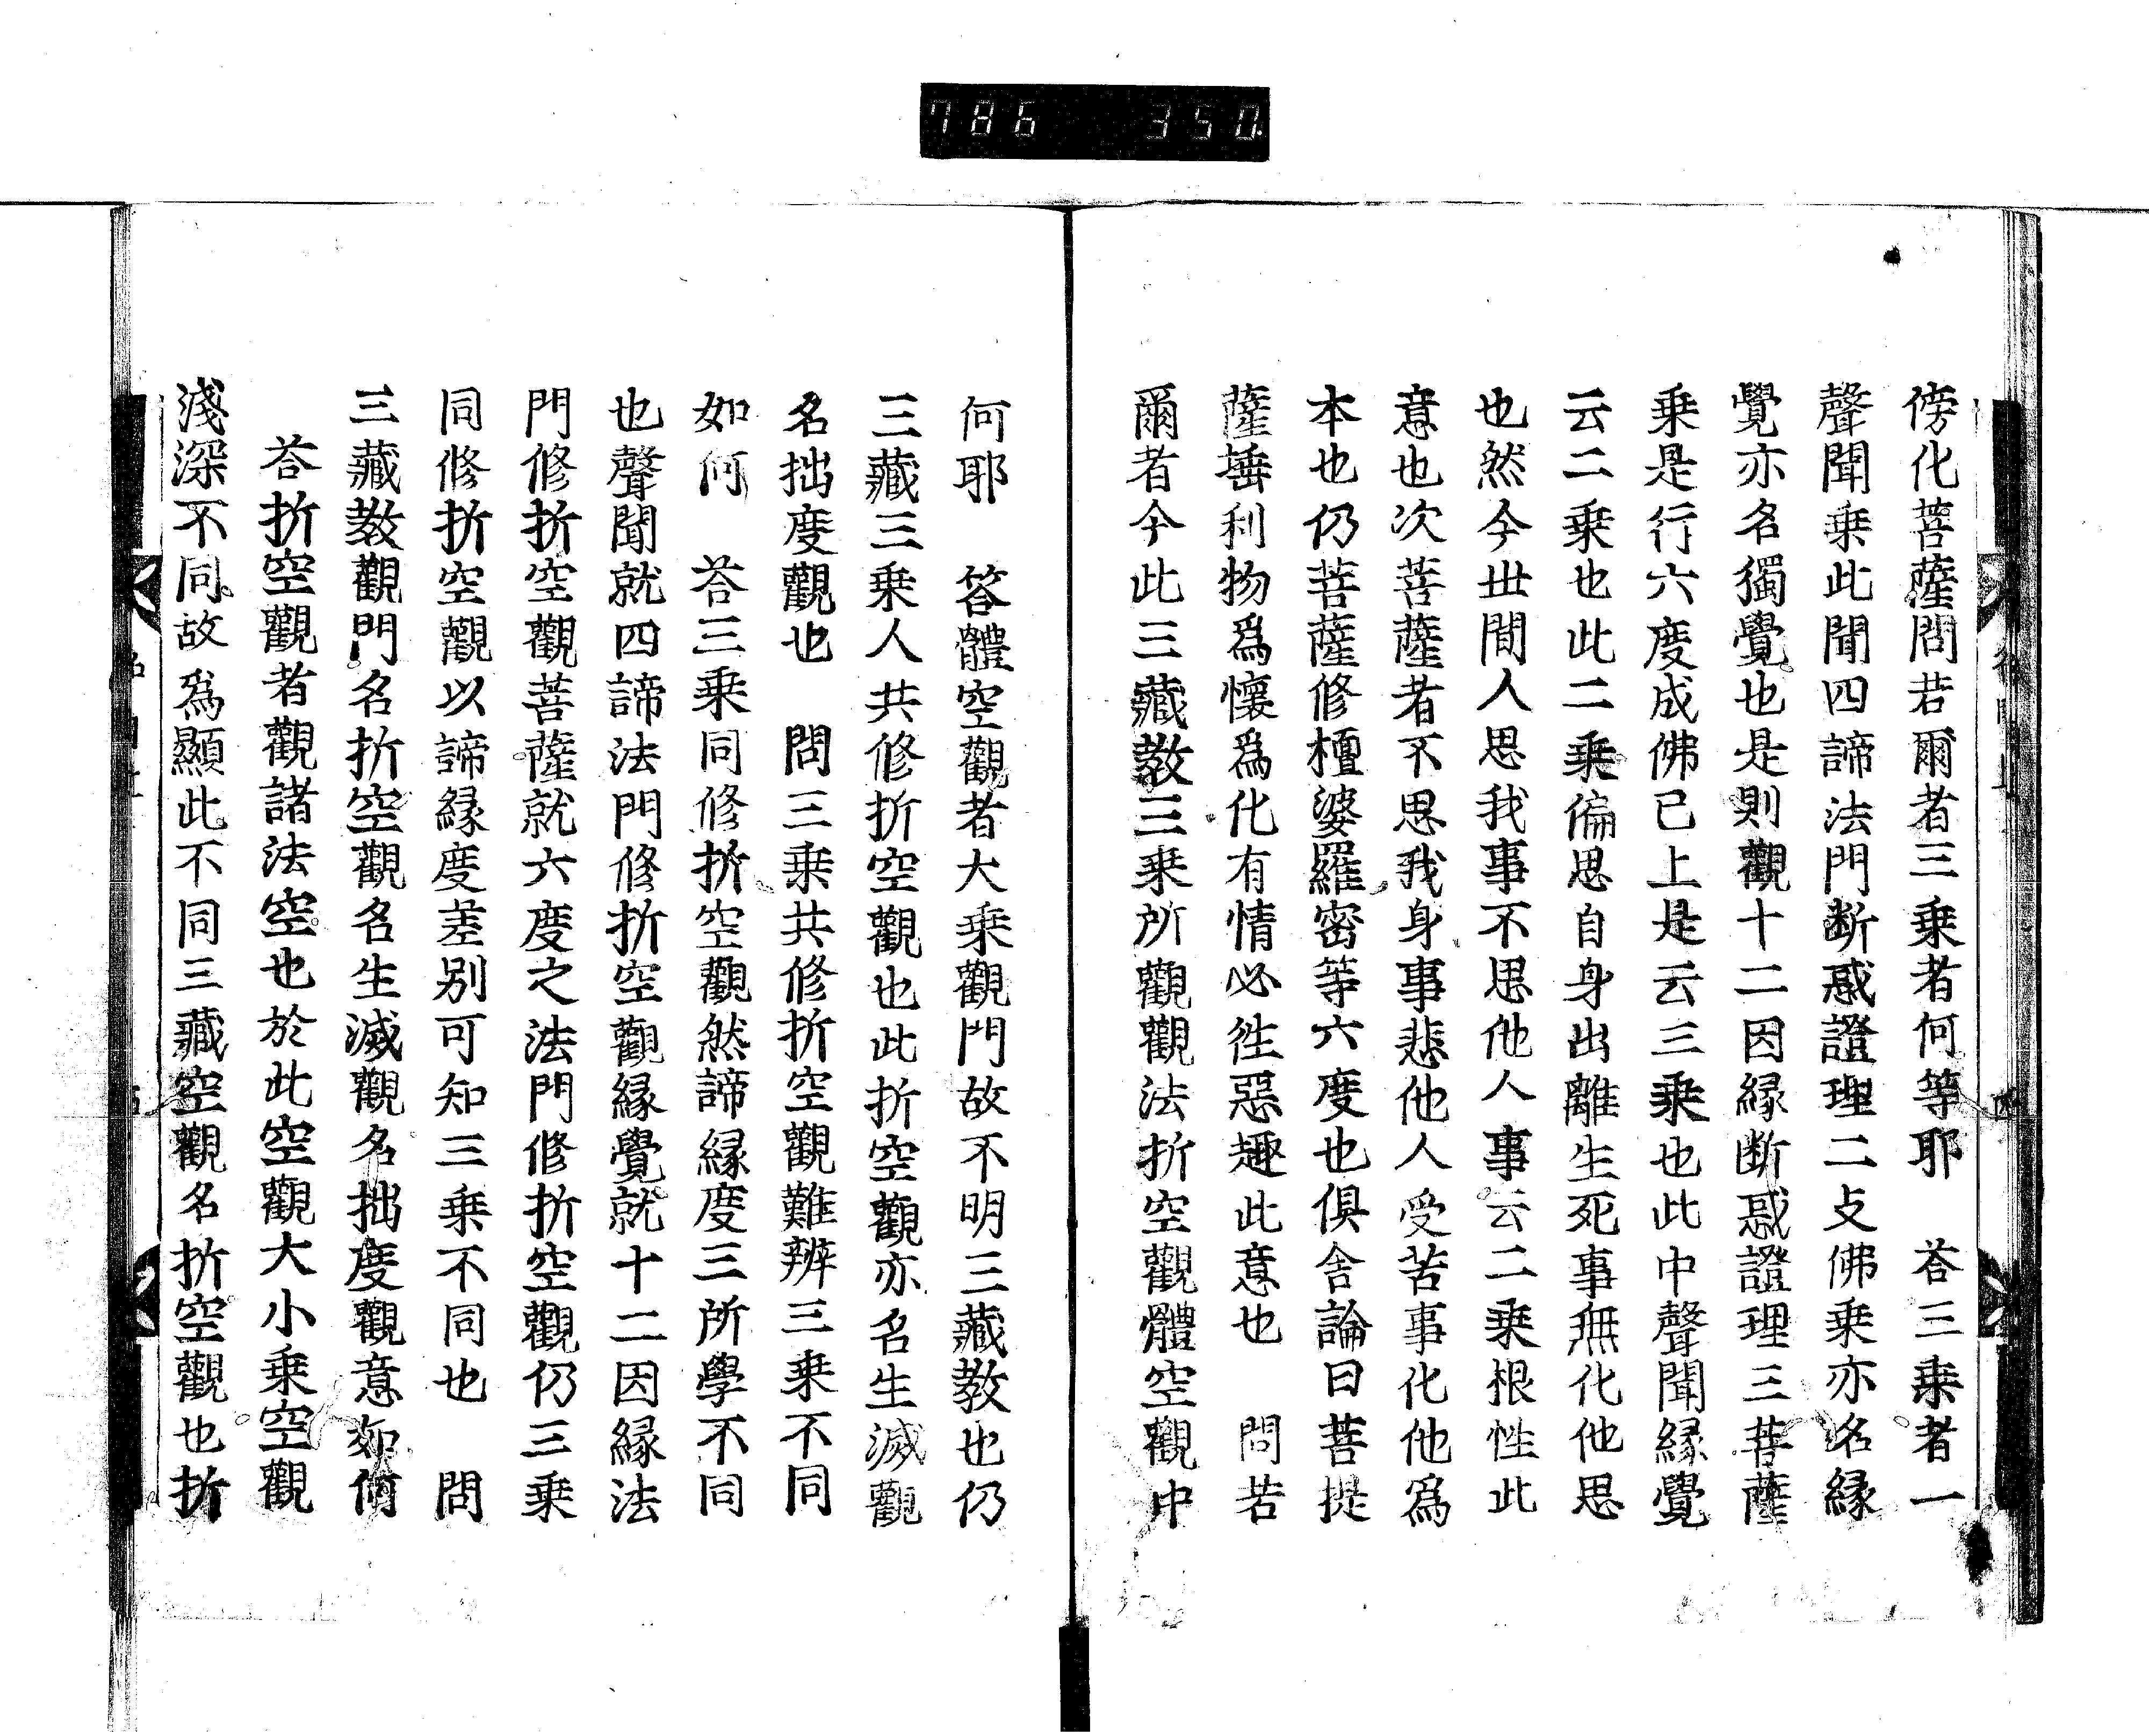 786 350.
傍化菩薩問若爾者三乗者何等耶　荅三乗者一
聲聞乗此聞四諦法門断惑證理二攴佛乗亦名縁
覺亦名獨覺也是則觀十二因縁断惑證理三菩薩
乗是行六度成佛已上是云三乗也此中聲聞縁覺
云二乗也此二乗偏思自身出離生死事無化他思
也然今世間人思我事不思他人事云二乗根性此
意也次菩薩者不思我身事悲他人受苦事化他爲
本也仍菩薩修檀婆羅密等六度也俱舎論曰菩提
薩埵利物爲懷爲化有情必徃惡趣此意也　問若
爾者今此三藏教三乗所觀觀法折空觀體空觀中
何耶　答體空觀者大乗觀門故不明三藏教也仍
三藏三乗人共修折空觀也此折空觀亦名生滅觀
名拙度觀也　問三乗共修折空觀難辨三乗不同
如何　荅三乗同修折空觀然諦縁度三所學不同
也聲聞就四諦法門修折空觀縁覺就十二因縁法
門修折空觀菩薩就六度之法門修折空觀仍三乗
同修折空觀以諦縁度差別可知三乗不同也　問
三藏教觀門名折空觀名生滅觀名拙度觀意如何
荅折空觀者觀諸法空也於此空觀大小乗空觀
淺深不同故爲顯此不同三藏空觀名折空觀也折